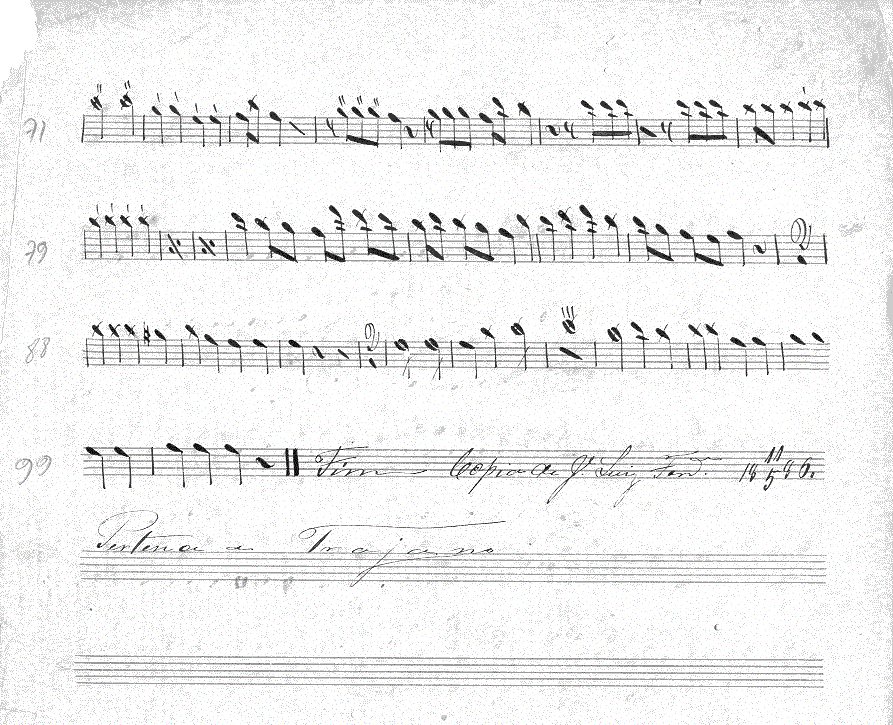 71
79
88
99 Fim Copia de J. Luiz Fer.
Pertence a Trajano